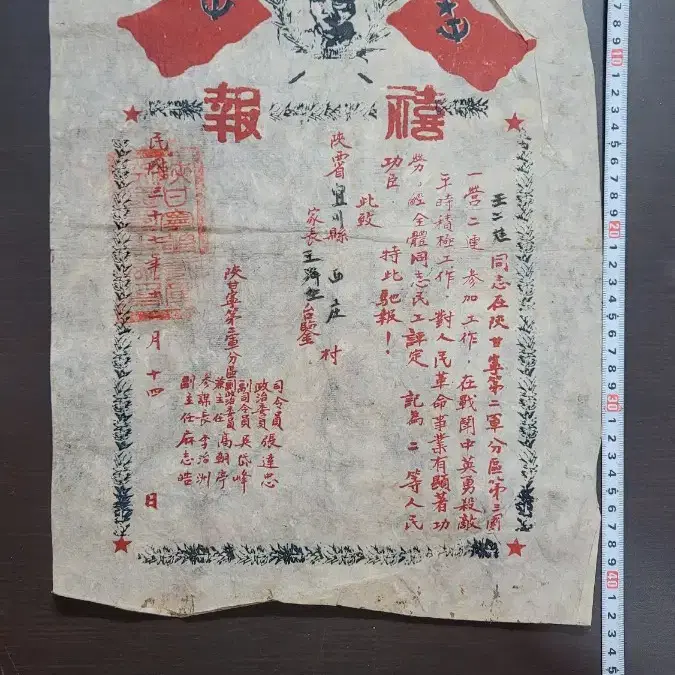 禧報
王二 同志在陝甘寧第二軍分區第三團
一營二連參加工作,在戰鬥中英勇殺敵
平時積極工作,對人民革命事業有顯著功
勞,經全體同志民工評定 記為二等人民
功臣。特此馳報!
此致
陝西省宜川縣西庄村
家長王台鑒
陝甘寧第二軍分區
司令員
政治委員 張達忠
副司令員吳岱峰
副政治委員
兼主任 高朗亭
參謀長李治洲
副主任麻志皓
民國三十七年 月十四日